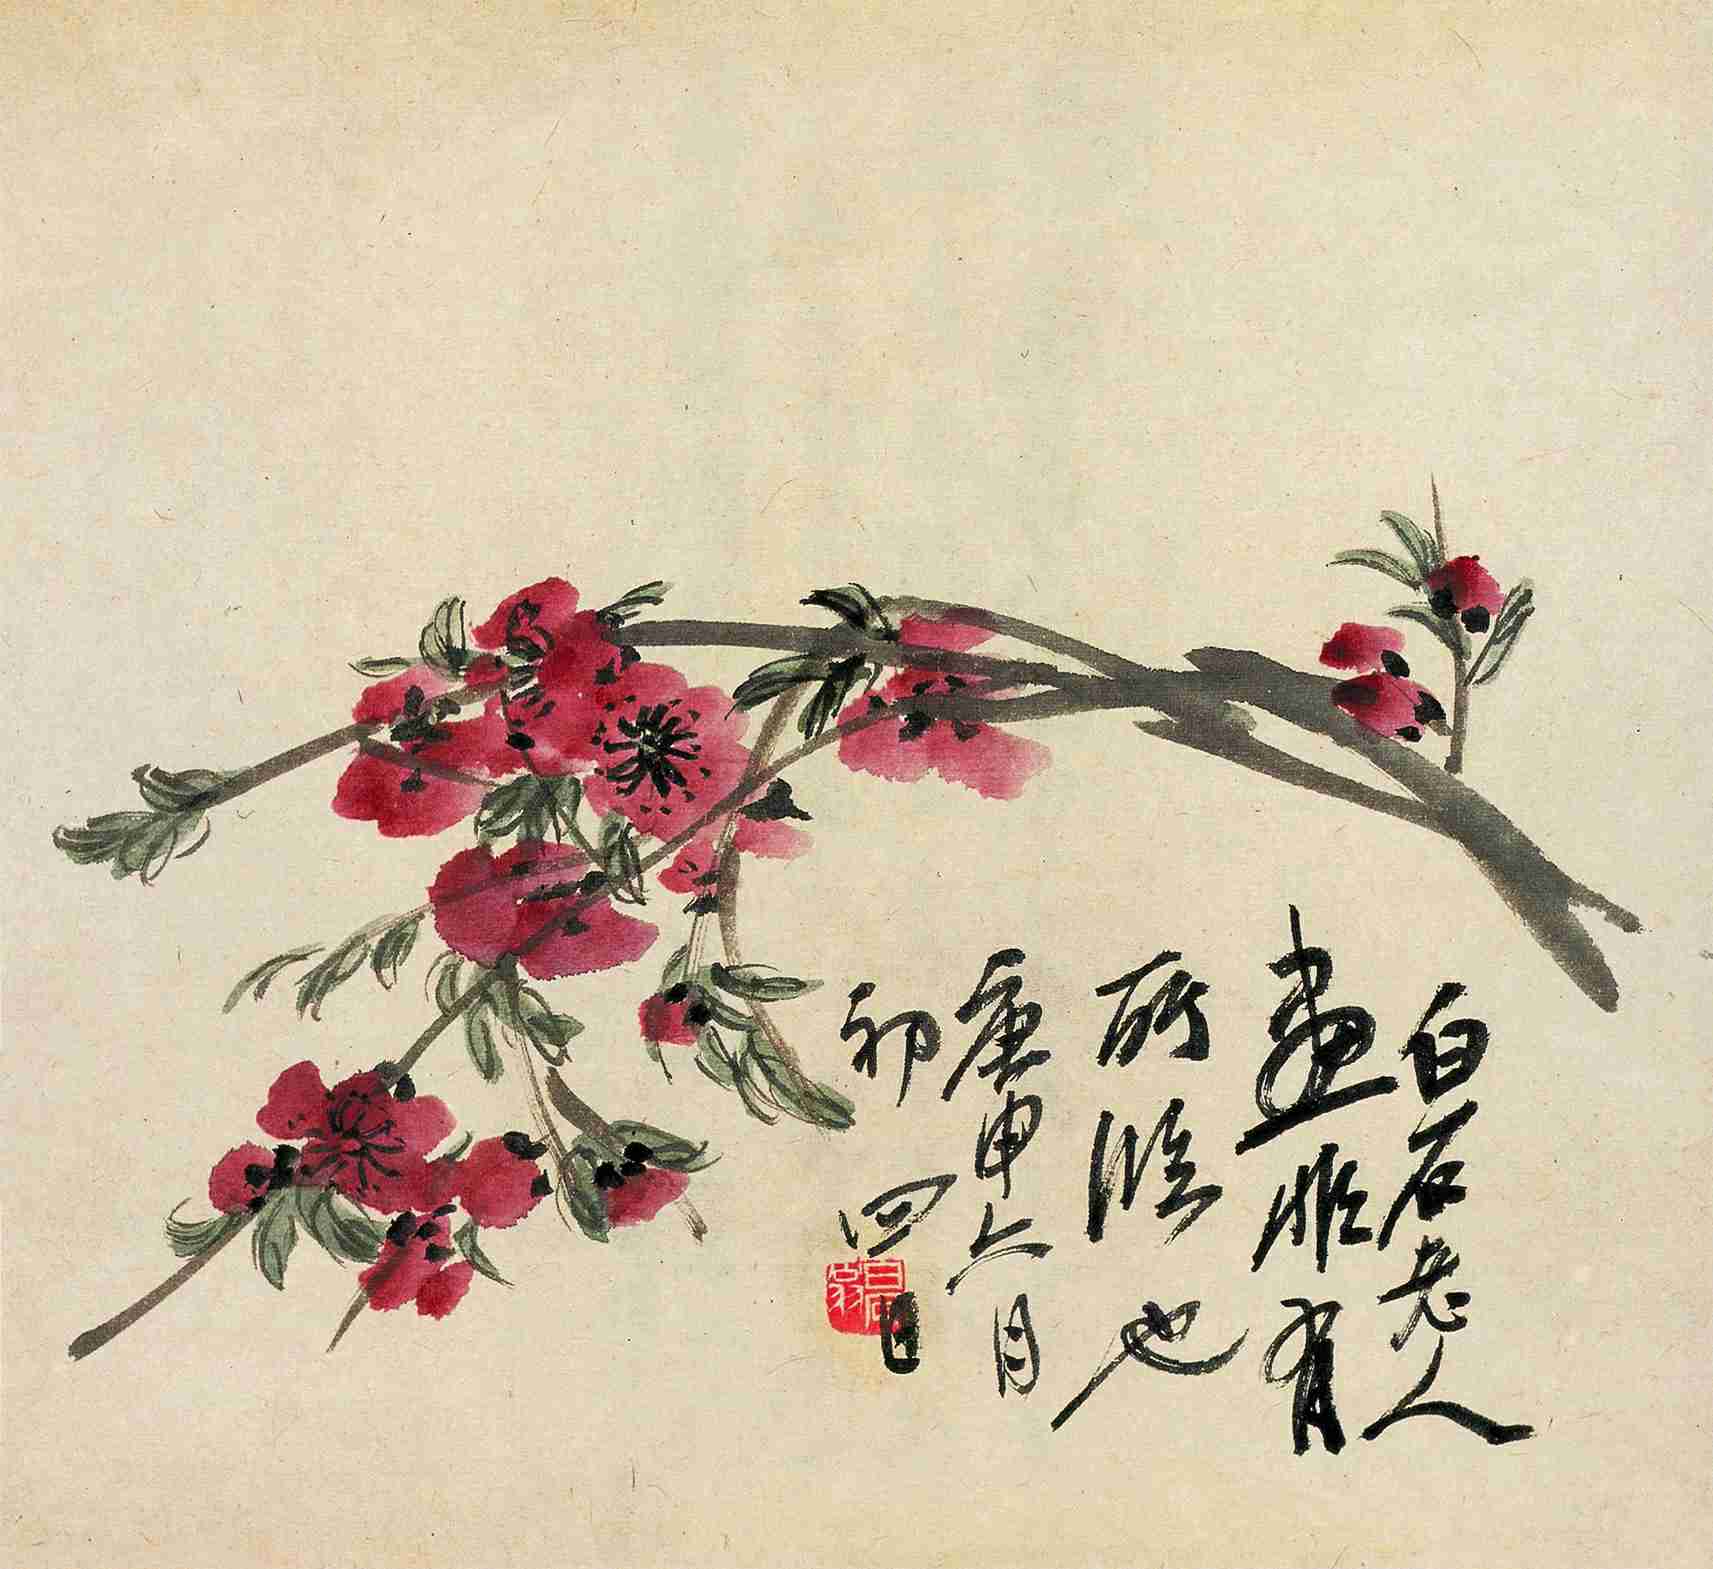 白石老人
畫惟有
所臨也
庚申六月
初四日
白石翁